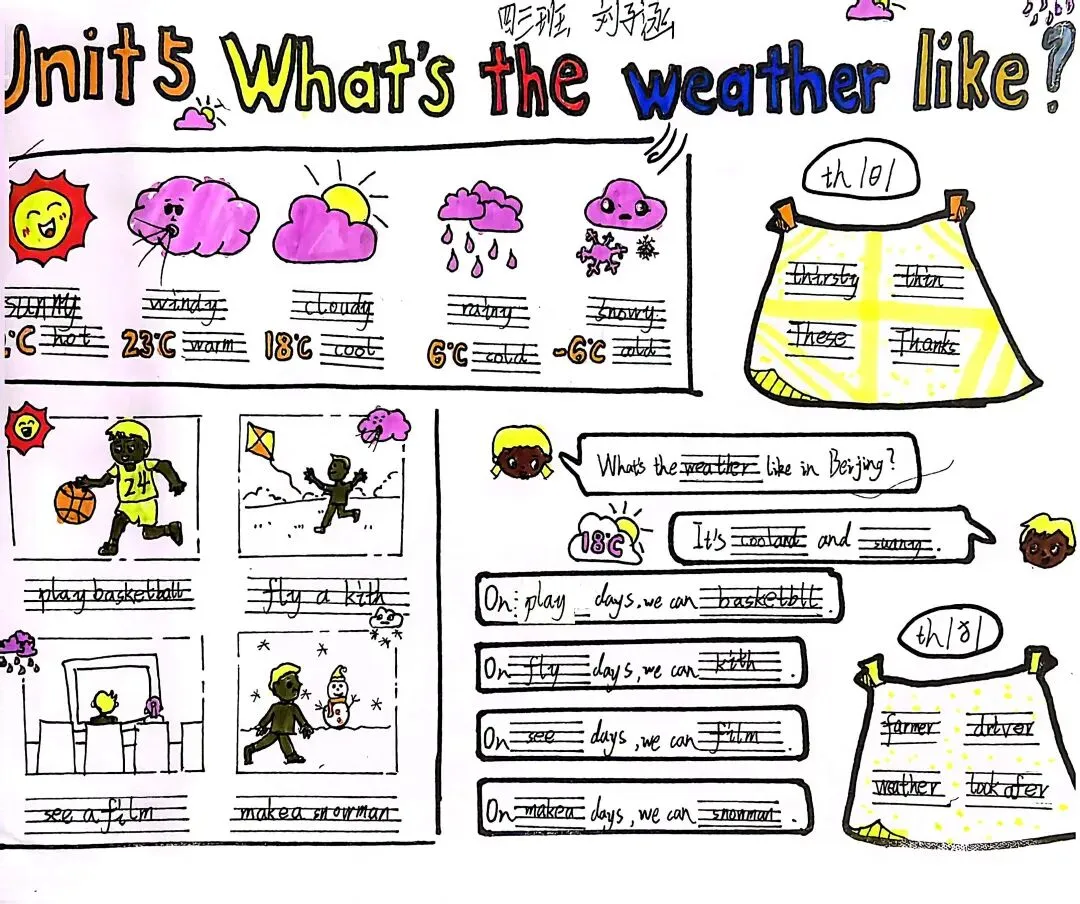 四三班 刘子涵
Unit 5 What's the weather like?
sunny windy cloudy rainy snowy
°C hot 23°C warm 18°C cool 6°C cold -6°C cold
th /θ/
thirsty thin
These Thanks
24
play basketball
fly a kith
see a film
make a snowman
What's the weather like in Beijing?
18°C
It's cooland and sunny.
On play days, we can basketbll.
On fly days, we can kith.
On see days, we can film.
On makea days, we can snowman.
th /ʊ̆/
farmer driver
weather look afer